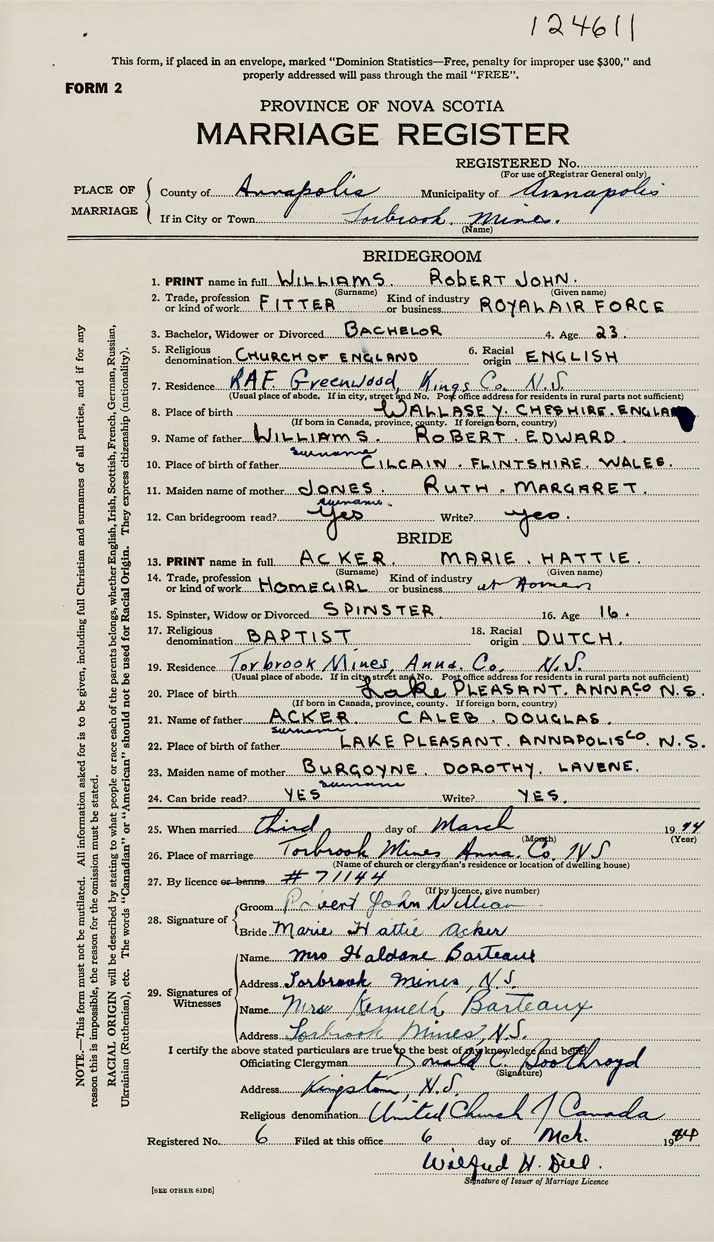 124611
This form, if placed in an envelope, marked "Dominion Statistics—Free, penalty for improper use $300," and
properly addressed will pass through the mail "FREE".
FORM 2
PROVINCE OF NOVA SCOTIA
MARRIAGE REGISTER
REGISTERED No.
(For use of Registrar General only)
PLACE OF MARRIAGE
County of Annapolis Municipality of Annapolis
If in City or Town Torbrook Mines.
(Name)
BRIDEGROOM
1. PRINT name in full WILLIAMS. ROBERT JOHN.
(Surname) (Given name)
2. Trade, profession or kind of work FITTER Kind of industry or business ROYAL AIR FORCE
3. Bachelor, Widower or Divorced BACHELOR 4. Age 23.
5. Religious denomination CHURCH OF ENGLAND 6. Racial origin ENGLISH
7. Residence RAF. Greenwood, Kings Co. N.S.
(Usual place of abode. If in city, street and No. Post office address for residents in rural parts not sufficient)
8. Place of birth WALLASEY. CHESHIRE. ENGLAN
(If born in Canada, province, county. If foreign born, country)
9. Name of father WILLIAMS. ROBERT EDWARD.
surname
10. Place of birth of father CILCAIN. FLINTSHIRE. WALES.
11. Maiden name of mother JONES. RUTH. MARGARET.
surname.
12. Can bridegroom read? Yes Write? yes.
BRIDE
13. PRINT name in full ACKER. MARIE. HATTIE.
(Surname) (Given name)
14. Trade, profession or kind of work HOMEGIRL Kind of industry or business at Home
15. Spinster, Widow or Divorced SPINSTER 16. Age 16.
17. Religious denomination BAPTIST 18. Racial origin DUTCH.
19. Residence Torbrook Mines, Anna. Co. N.S.
(Usual place of abode. If in city, street and No. Post office address for residents in rural parts not sufficient)
20. Place of birth Lake PLEASANT. ANNA CO N.S.
(If born in Canada, province, county. If foreign born, country)
21. Name of father ACKER CALEB DOUGLAS.
surname
22. Place of birth of father LAKE PLEASANT. ANNAPOLIS CO. N.S.
23. Maiden name of mother BURGOYNE. DOROTHY. LAVENE.
surname
24. Can bride read? YES Write? YES.
25. When married third day of March 1944
(Month) (Year)
26. Place of marriage Torbrook Mines Anna. Co. NS
(Name of church or clergyman's residence or location of dwelling house)
27. By licence or banns # 71144
(If by licence, give number)
28. Signature of Groom John William
Bride Marie Hattie Acker
29. Signatures of Witnesses
Name Mrs Haldane Barteaux
Address Torbrook Mines, N.S.
Name Mrs Kenneth Barteaux
Address Torbrook Mines, N.S.
I certify the above stated particulars are true to the best of my knowledge and belief.
Officiating Clergyman Donald C. Boothroyd
(Signature)
Address Kingston, N.S.
Religious denomination United Church of Canada
Registered No. 6 Filed at this office 6 day of Mch. 1944
Wilfred H. Dill.
Signature of Issuer of Marriage Licence
[SEE OTHER SIDE]
NOTE.—This form must not be mutilated. All information asked for is to be given, including full Christian and surnames of all parties, and if for any
reason this is impossible, the reason for the omission must be stated.
RACIAL ORIGIN will be described by stating to what people or race each of the parents belongs, whether English, Irish, Scottish, French, German, Russian,
Ukrainian (Ruthenian), etc. The words "Canadian" or "American" should not be used for Racial Origin. They express citizenship (nationality).